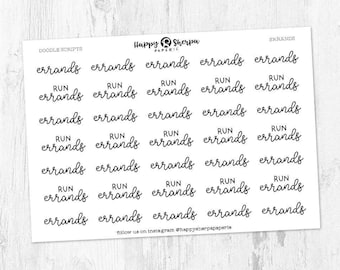 DOODLE SCRIPTS
Happy Sherpa
PAPERIE
ERRANDS
errands errands errands errands errands
RUN RUN RUN RUN RUN
errands errands errands errands errands
errands errands errands errands errands
RUN RUN RUN RUN RUN
errands errands errands errands errands
errands errands errands errands errands
RUN RUN RUN RUN RUN
errands errands errands errands errands
errands errands errands errands errands
follow us on instagram @happysherpapaperie